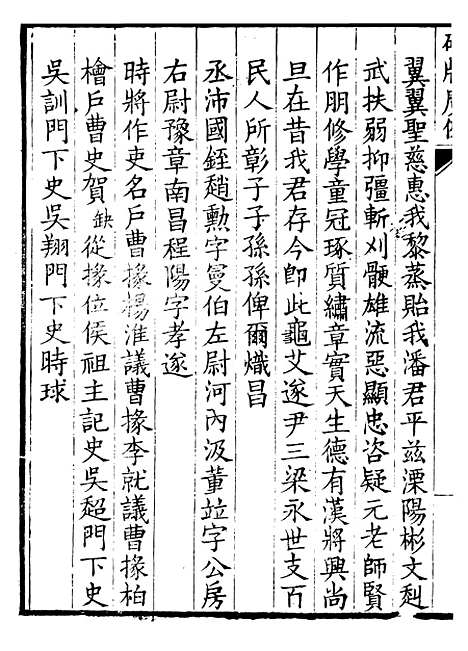 翼翼聖慈惠我黎蒸貽我潘君平茲溧陽彬文赳
武扶弱抑彊斬刈骾雄流惡顯忠咨疑元老師賢
作朋修學童冠琢質繡章實天生德有漢將興尚
旦在昔我君存今卽此龜艾遂尹三梁永世支百
民人所彰子子孫孫俾爾熾昌
丞沛國銍趙勳字蔓伯左尉河內汲董竝字公房
右尉豫章南昌程陽字孝遂
時將作吏名戶曹掾楊淮議曹掾李就議曹掾柏
檜戶曹史賀缺從掾位侯祖主記史吳超門下史
吳訓門下史吳翔門下史時球